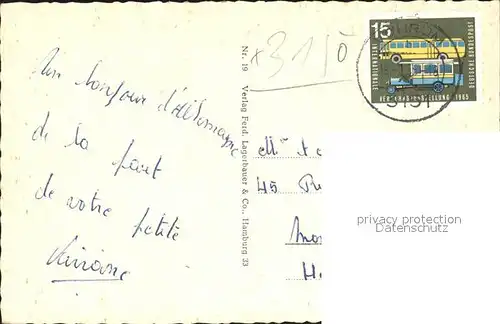 Un bonjour d'Allemagne
de la part
de votre petite
Viviane
Nr. 19 Verlag Ferd. Lagerbauer & Co., Hamburg 33
x 31/0
15
DEUTSCHE BUNDESPOST
VERKEHRSAUSSTELLUNG 1965
3151
Mr
45
privacy protection
Datenschutz